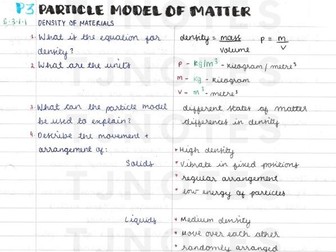 P3 PARTICLE MODEL OF MATTER
6.3.1.1 DENSITY OF MATERIALS
1. What is the equation for density?
density = mass / volume p = m / v
2. What are the units
p - kg/m³ - kilogram / metre³
m - kg - kilogram
v - m³ - metre³
3. What can the particle model be used to explain?
different states of matter
differences in density
4. Describe the movement + arrangement of:
Solids
• High density
• Vibrate in fixed positions
• regular arrangement
• low energy of particles
Liquids
• Medium density
• Move over each other
• randomly arranged
TJNOTES